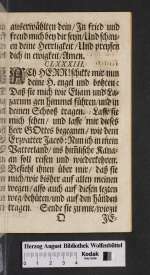 auserwählten dein/ In fried und
freud mich bey dir seyn/ Und schau-
en deine Herrligkeit/ Und preysen
dich in ewigkeit/ Amen.
CLXXXIII.
ACh HERR! schicke mir nun
deine H. engel und boten:
Daß sie mich wie Eliam und La-
zarum gen himmel führen/ und in
deinen Schooß tragen. Lasse sie
mich sehen/ und lasse mir dieses
Heer GOttes begegnen/ wie dem
Ertzvatter Jacob: Nun ich in mein
Vatterland/ ins himlische Kana-
an soll reisen und wiederkehren.
Befiehl ihnen über mir/ daß sie
mich/ wie bißher auf allen meinen
wegen/ also auch auf diesen letzten
weg/ behüten/ und auf den händen
tragen. Sende sie zu mir/ wenn
Q
Herzog August Bibliothek Wolfenbüttel
Kodak